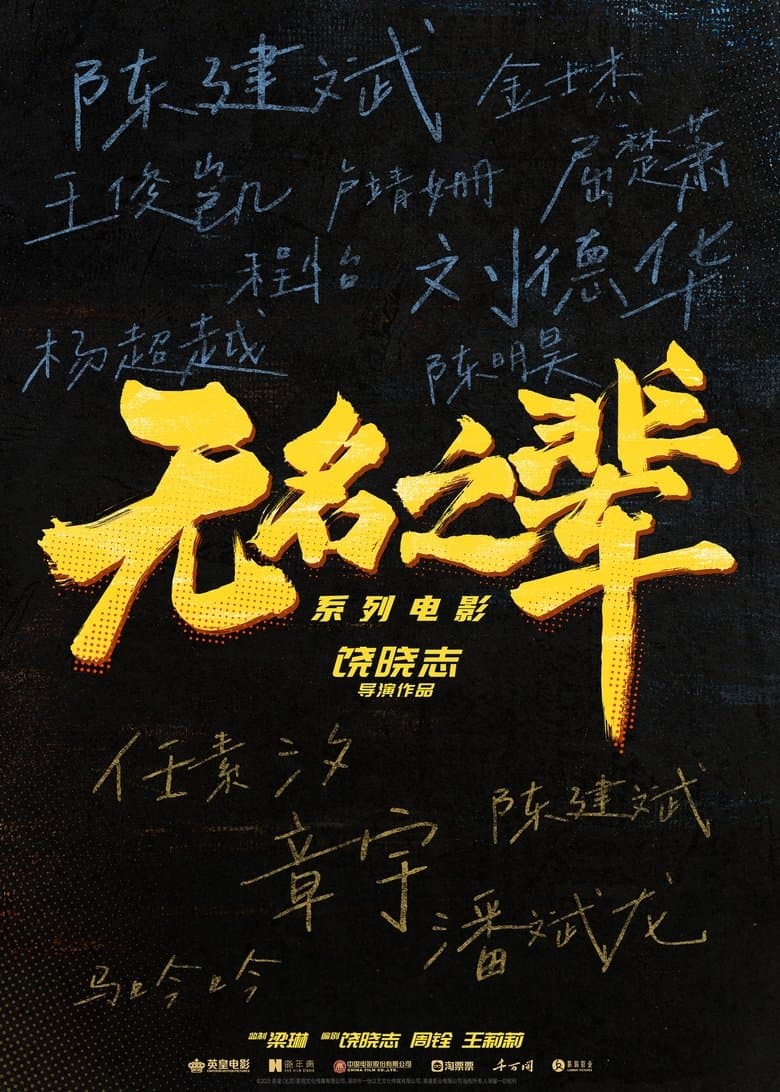 陈建斌 金士杰
王俊凯 卢靖姗 屈楚萧
程怡 刘德华
杨超越 陈明昊
无名之辈
系列电影
饶晓志
导演作品
任素汐
陈建斌
章宇
潘斌龙
马吟吟
监制 梁琳 编剧 饶晓志 周铨 王莉莉
英皇电影 中国电影股份有限公司 CHINA FILM CO.,LTD. 淘票票 千万间